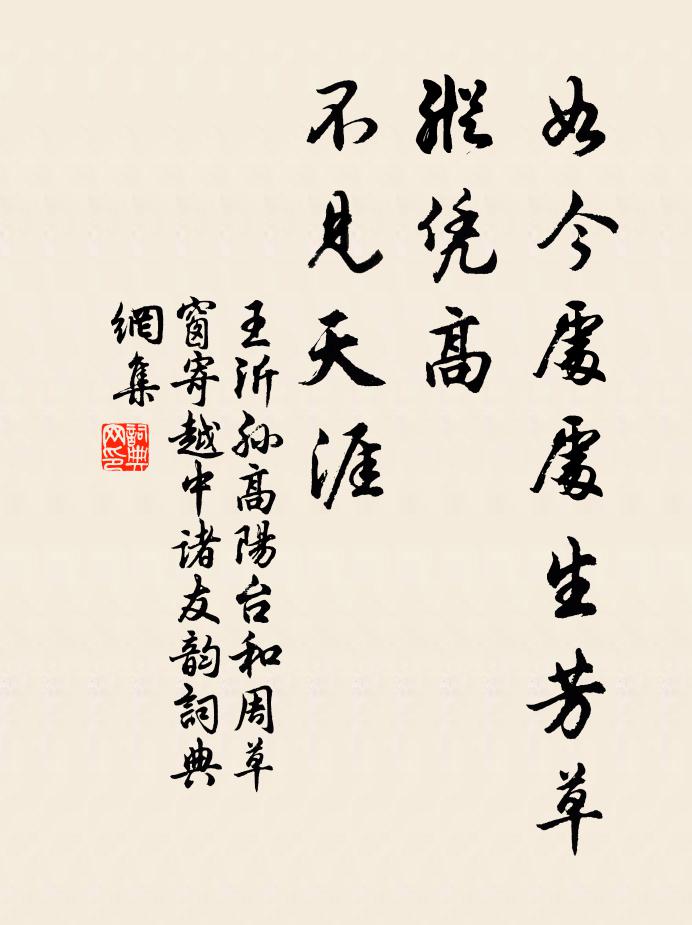 如今處處生芳草
縱凭高
不見天涯
王沂孙高陽台和周草
窗寄越中诸友韵詞典
網集
詞典
网印